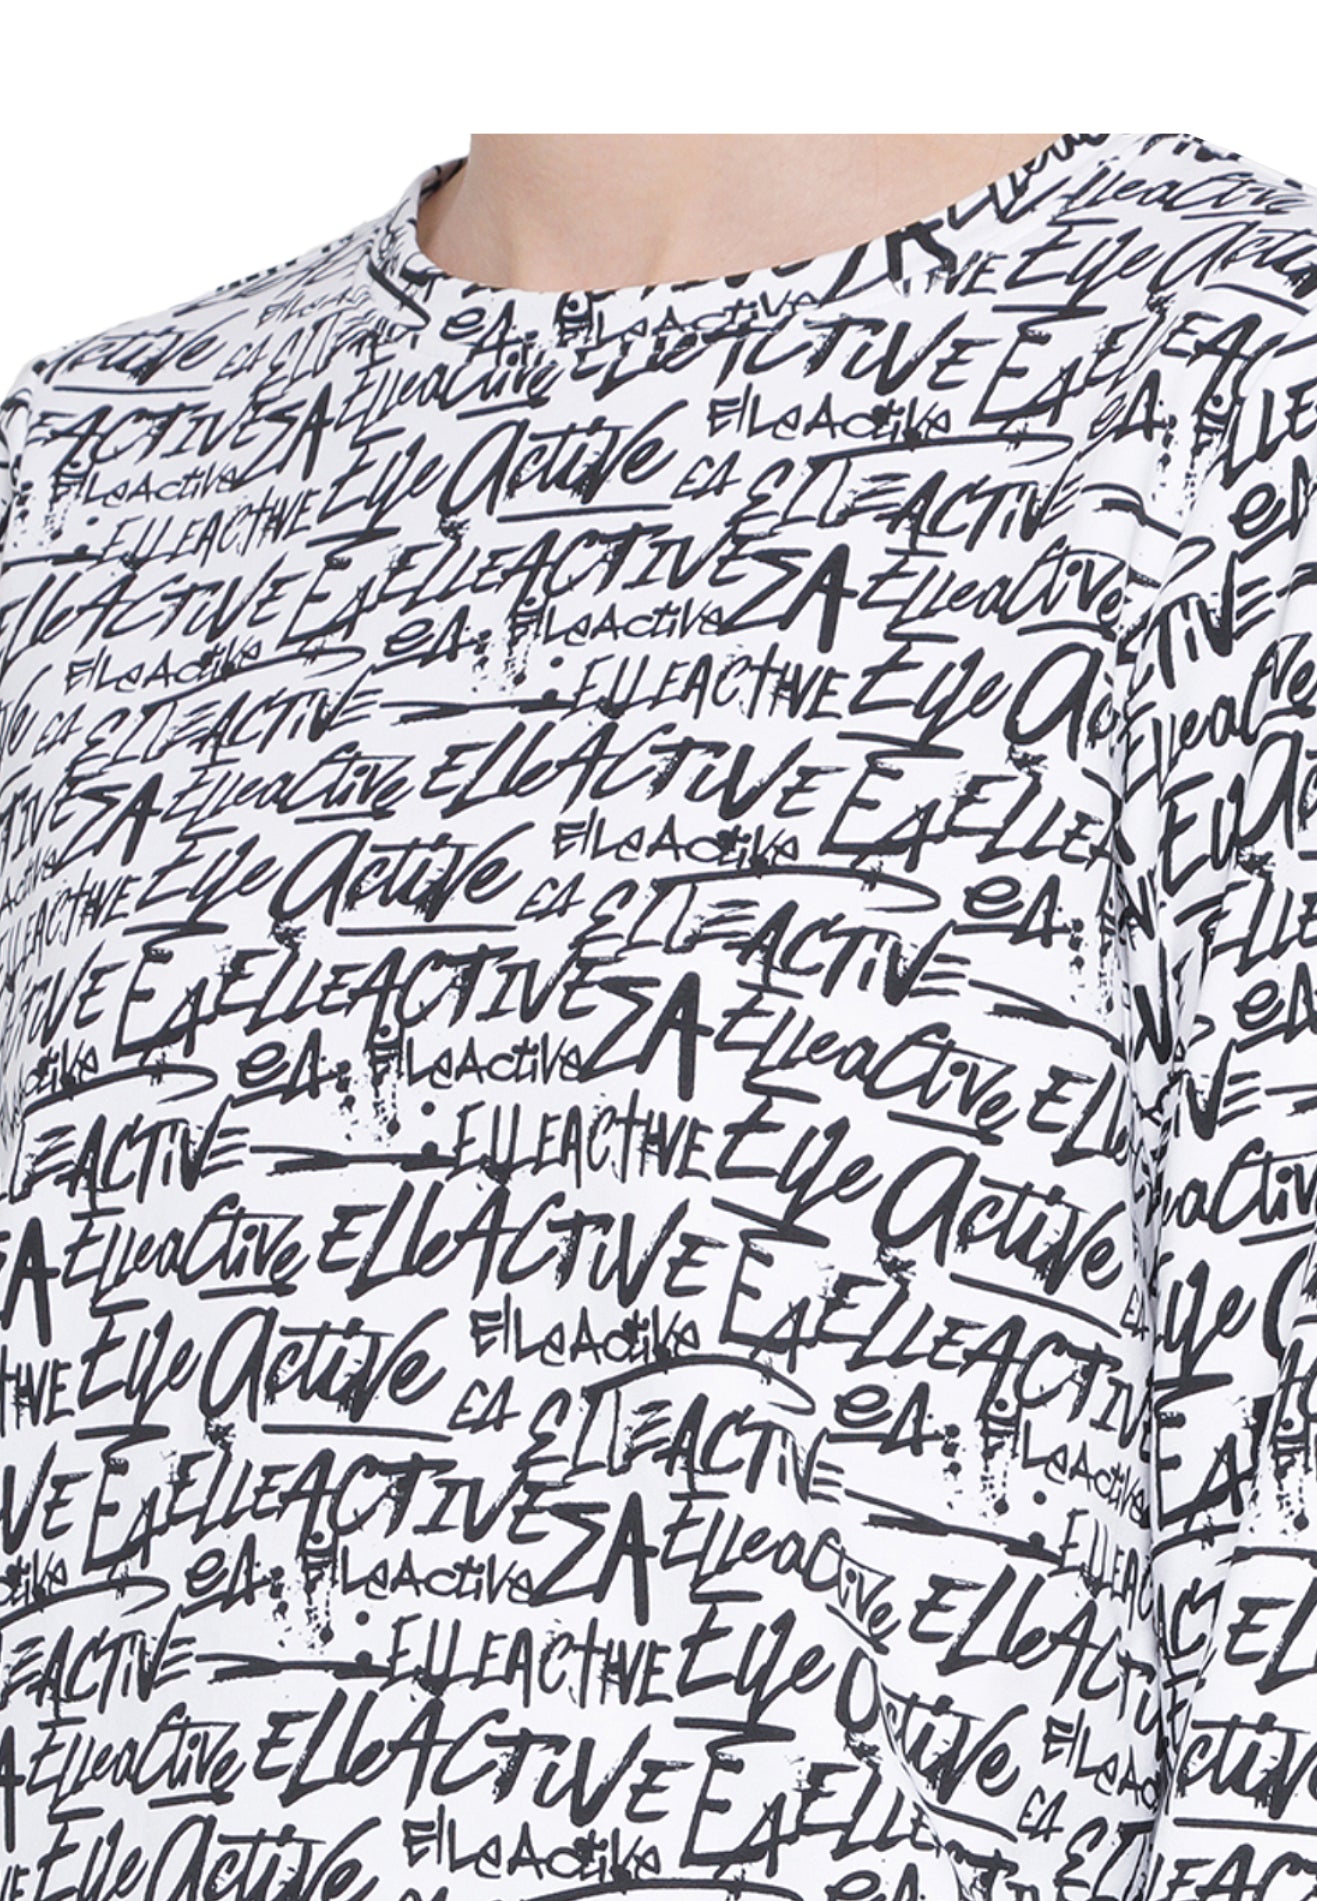 Elleactive
Elle Active
ElleActive
Active EA ELLE
Elleactive ElleACTIVE EA ELLEACTIVE
ElleActive
EACTIVE EA
Elle Active EA ELLEACTIVE
ElleActive
ELLEACTIVE
ElleACTIVE EA ELLEACTIVE EA Elleactive
ElleActive eA. ElleActive
ELLEACTIVE Elle Active
EA ELLEACTIVE
EA Elleactive ElleACTIVE EA ELLEACTIVE
Elle Active ElleActive eA.
EA ELLEACTIVE
EA ELLEACTIVE EA Elleactive
eA. ElleActive
ACTIVE ELLEACTIVE Elle Active
EA Elleactive ElleACTIVE EA ELLEACTIVE
Elle Active ElleActive eA. ElleActive
EA ELLEACTIVE
EA ELLEACTIVE EA Elleactive ElleACTIVE
eA. ElleActive
ACTIVE ELLEACTIVE Elle Active
Elleactive ElleACTIVE EA ELLE
Elle Active ElleActive